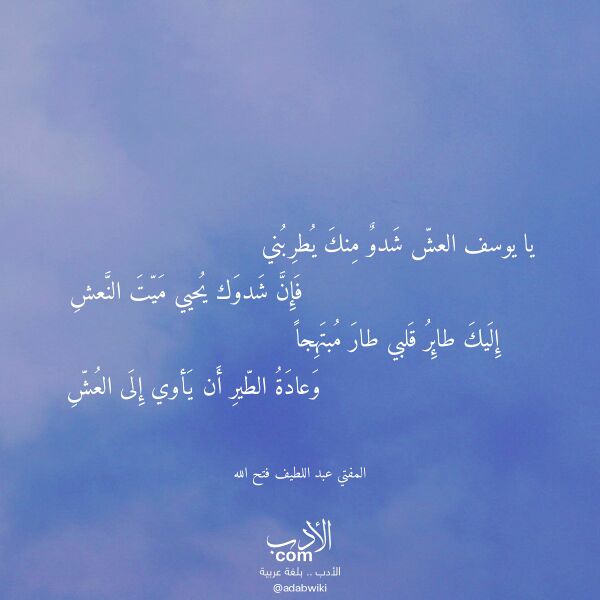 يا يوسف العشّ شَدوٌ مِنكَ يُطرِبُني
فَإِنَّ شَدوَك يُحيي مَيّتَ النَّعشِ
إِلَيكَ طائِرُ قَلبي طارَ مُبتَهِجاً
وَعادَةُ الطّيرِ أَن يَأوي إِلَى العُشِّ
المفتي عبد اللطيف فتح الله
الأدب
com
الأدب .. بلغة عربية
@adabwiki